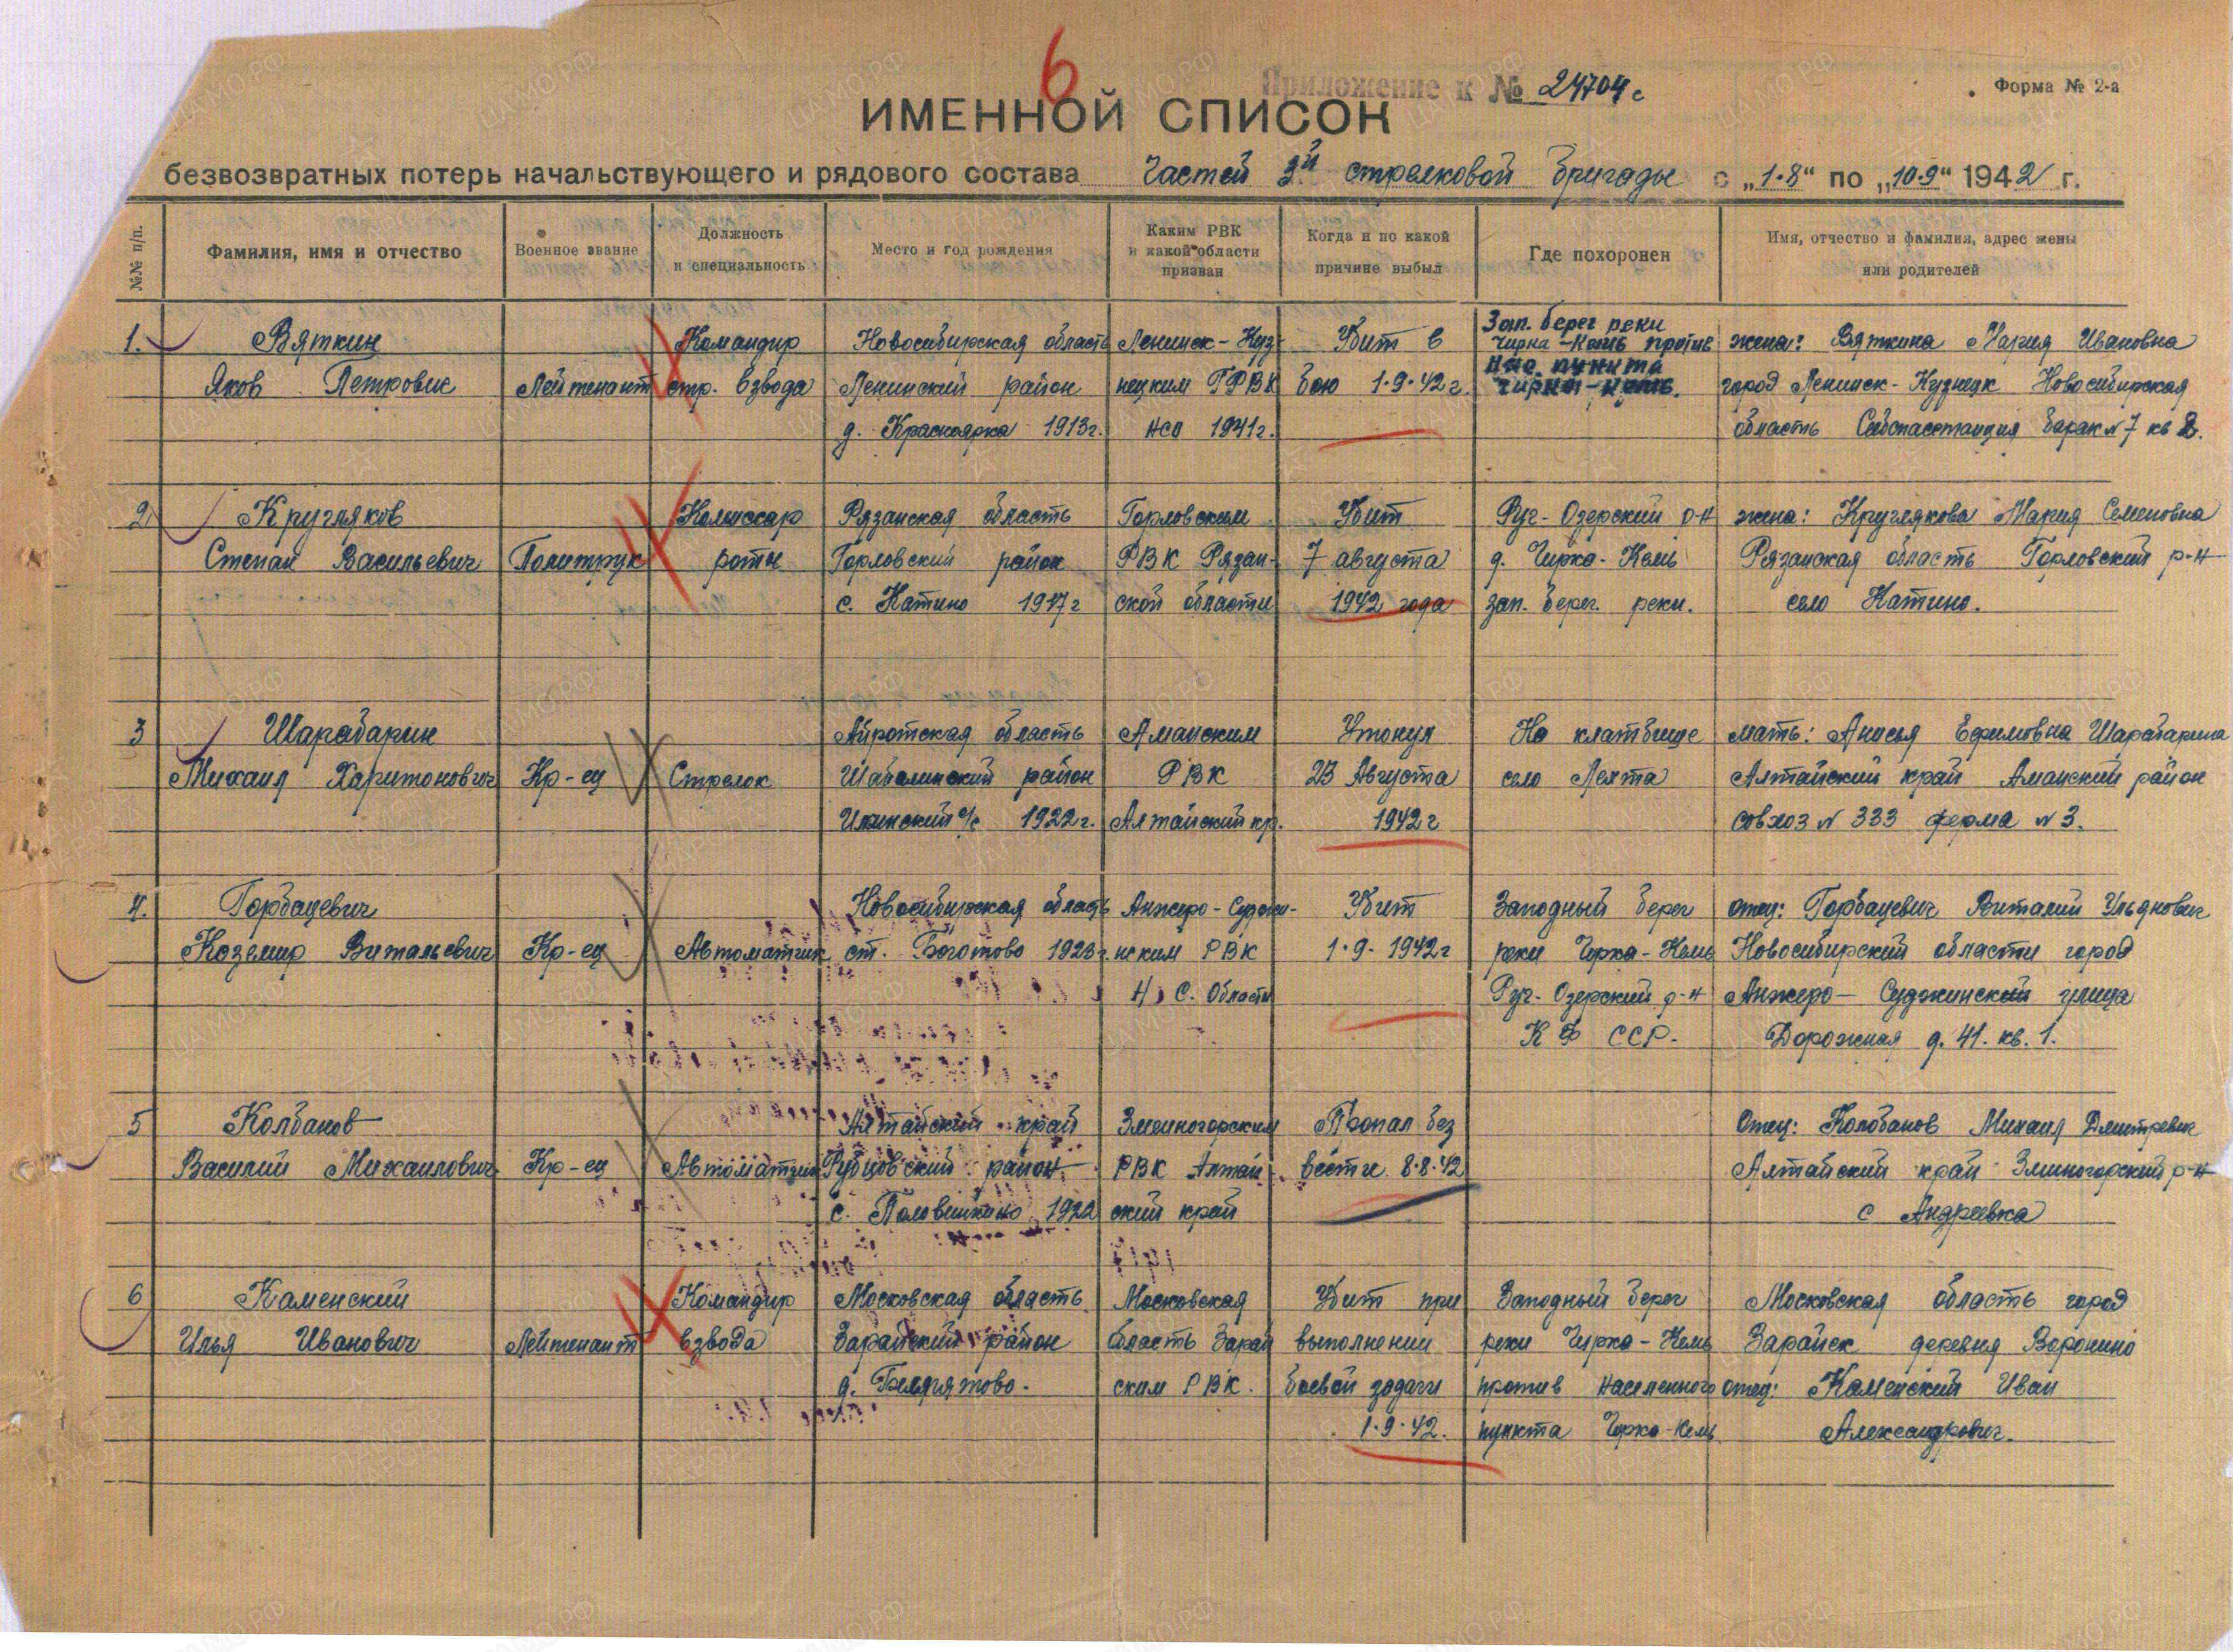 6
Приложение к № 24704с
Форма № 2-а
ИМЕННОЙ СПИСОК
безвозвратных потерь начальствующего и рядового состава Частей 3й стрелковой бригады с „1.8“ по „10.9“ 1942 г.
№№ п/п.
Фамилия, имя и отчество
Военное звание
Должность
и специальность
Место и год рождения
Каким РВК
и какой области
призван
Когда и по какой
причине выбыл
Где похоронен
Имя, отчество и фамилия, адрес жены
или родителей
1.
Вяткин
Яков Петрович
Лейтенант
Командир
стр. взвода
Новосибирская область
Ленинский район
д. Красноярка 1913г.
Ленинск-Куз-
нецким ГРВК
НСО 1941г.
Убит в
бою 1.9.42г.
Зап. берег реки
Чирка-Кемь против
нас. пункта
Чирка-Кемь.
жена: Вяткина Мария Ивановна
город Ленинск-Кузнецк Новосибирская
область Барак №7 кв 2.
2
Кругляков
Степан Васильевич
Политрук
Комиссар
роты
Рязанская область
Горловский район
с. Катино 1917г
Горловским
РВК Рязан-
ской области
Убит
7 августа
1942 года
Руг-Озерский р-н
д. Чирка-Кемь
зап. берег реки.
жена: Круглякова Мария Семеновна
Рязанская область Горловский р-н
село Катино.
3
Шарабарин
Михаил Харитонович
Кр-ец
Стрелок
Айротская область
Шабалинский район
с/с 1922г.
Аманским
РВК
Алтайский кр.
Утонул
23 Августа
1942г
На клатбище
село Лехта
мать: Анисья Ефимовна Шарабарина
Алтайский край Аманский район
совхоз № 333 ферма № 3.
4.
Горбацевич
Коземир Витальевич
Кр-ец
Автоматчик
Новосибирская область
ст. Боготово 1923г.
Анжеро-Суджи-
нским РВК
Н. С. Области
Убит
1.9.1942г
Западный берег
реки Чирка-Кемь
Руг-Озерский р-н
К Ф ССР.
отец: Горбацевич Виталий Ульянович
Новосибирский области город
Анжеро-Суджинский улица
Дорожная д. 41. кв. 1.
5
Колбанов
Василий Михаилович
Кр-ец
Автоматчик
Алтайский край
Рубцовский район
с. Половинкино 1922
Змеиногорским
РВК Алтай-
ский край
Пропал без
вести 8.8.42
Отец: Колобанов Михаил Дмитревич
Алтайский край Зминогорский р-н
с Андреевка
6
Каменский
Илья Иванович
Лейтенант
Командир
взвода
Московская область
Зарайский район
Московская
область Зарай
ским РВК.
Убит при
выполнении
боевой задачи
1.9.42.
Западный берег
реки Чирка-Кемь
против населенного
пункта Чирка-Кемь
Московская область город
Зарайск деревня Воронино
отец: Каменский Иван
Александрович.